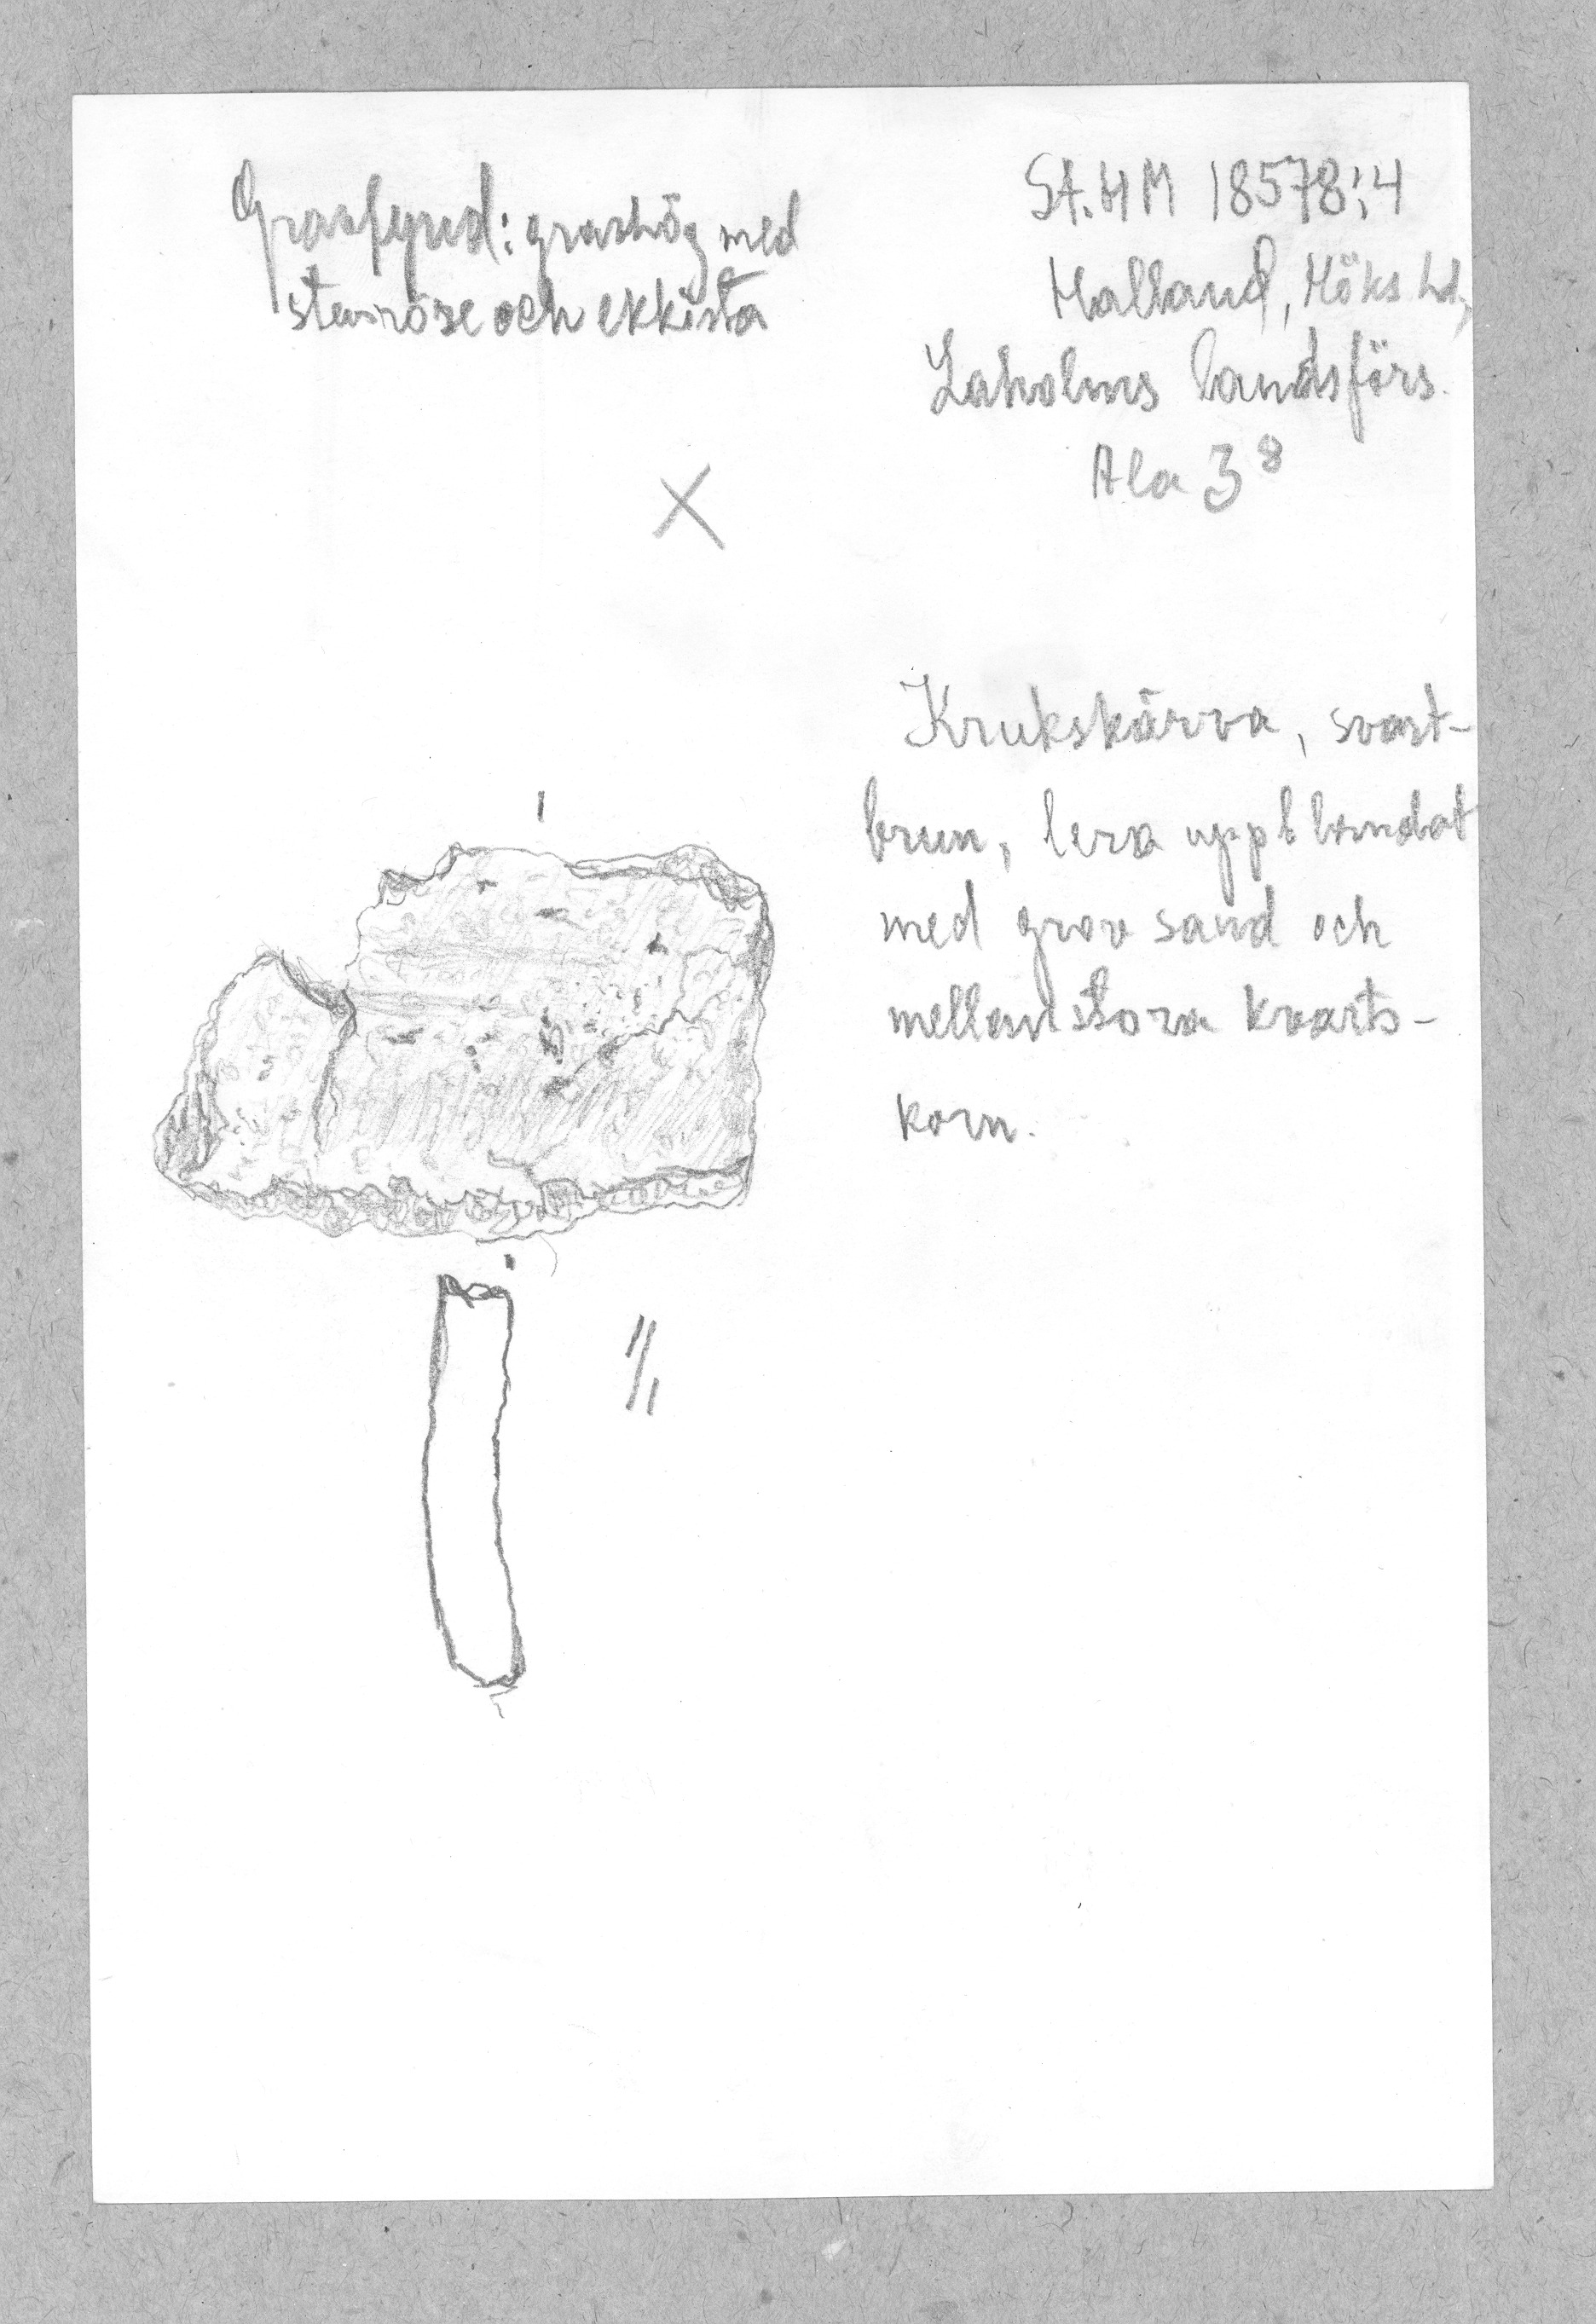 Gravfynd: gravhög med
stenröse och ekkista
St.HM 18578:4
Halland, Höks hd,
Laholms landsförs.
Ala 3⁸
X
Krukskärva, svart-
brun, lera uppblandat
med grov sand och
mellanstora kvarts-
korn.
1/1